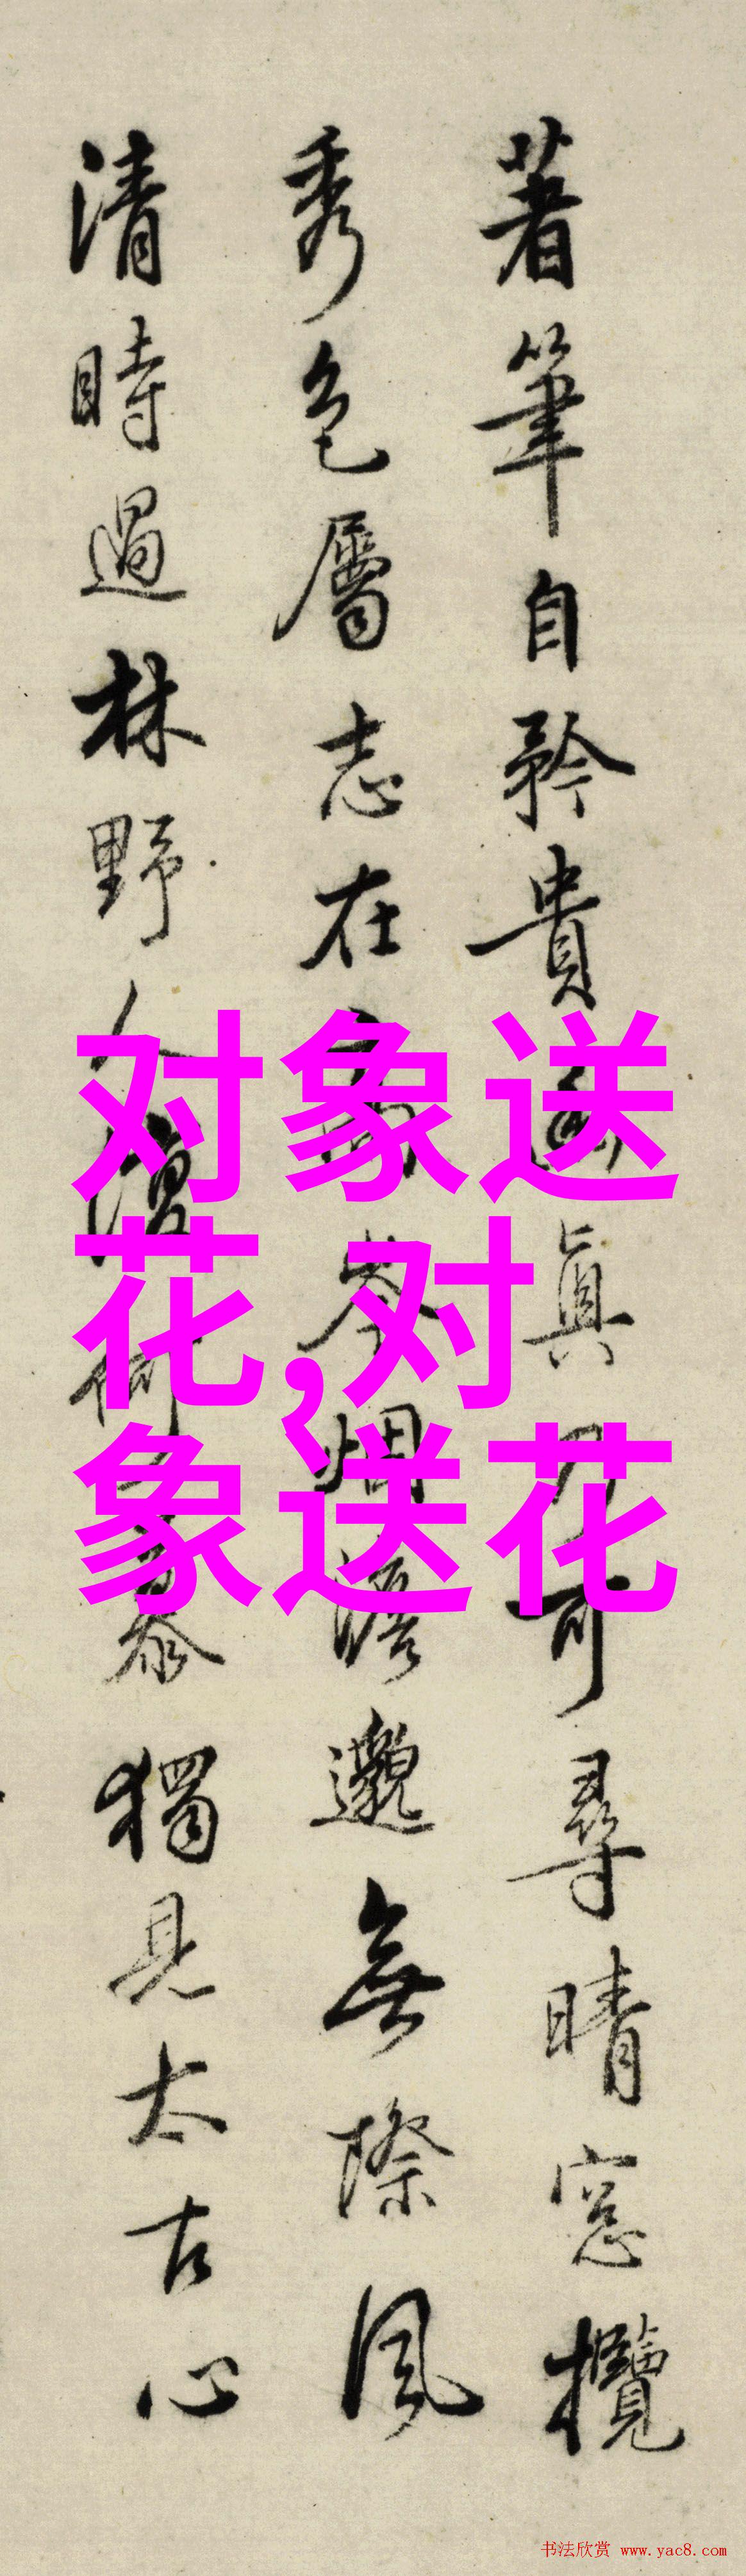 著筆自矜貴真可尋晴窓攬
秀色屬志在岑烟邈無際風
清時過林野人復何慕獨見太古心
对象送
花,对
象送花
书法欣赏 www.yac8.com